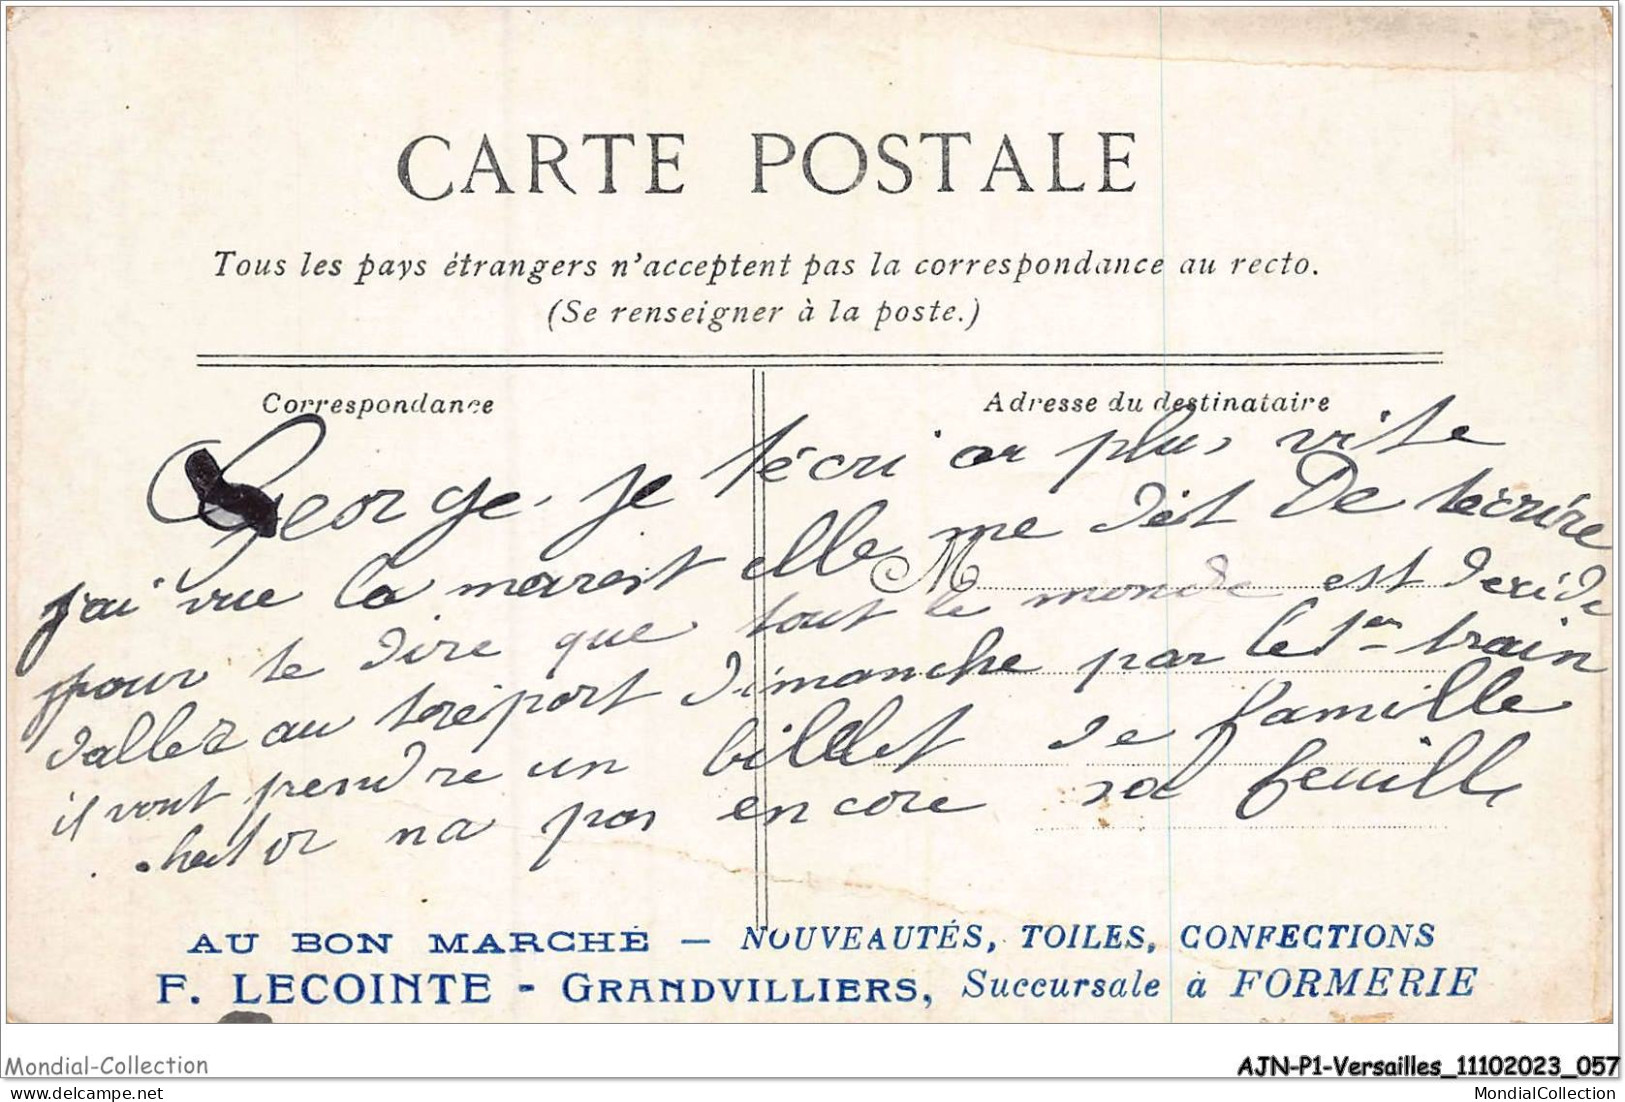 CARTE POSTALE
Tous les pays étrangers n'acceptent pas la correspondance au recto.
(Se renseigner à la poste.)
Correspondance
Adresse du destinataire
George. je t'écri au plus vite
j'ai vue la marent elle me dit De técrire
M
pour te dire que tout le monde est decide
daller au tréport dimanche par le 1er train
il vont prendre un billet de famille
na pas encore sa feuille
AU BON MARCHÉ — NOUVEAUTÉS, TOILES, CONFECTIONS
F. LECOINTE - GRANDVILLIERS, Succursale à FORMERIE
Mondial-Collection
AJN-P1-Versailles_11102023_057
www.delcampe.net
MondialCollection